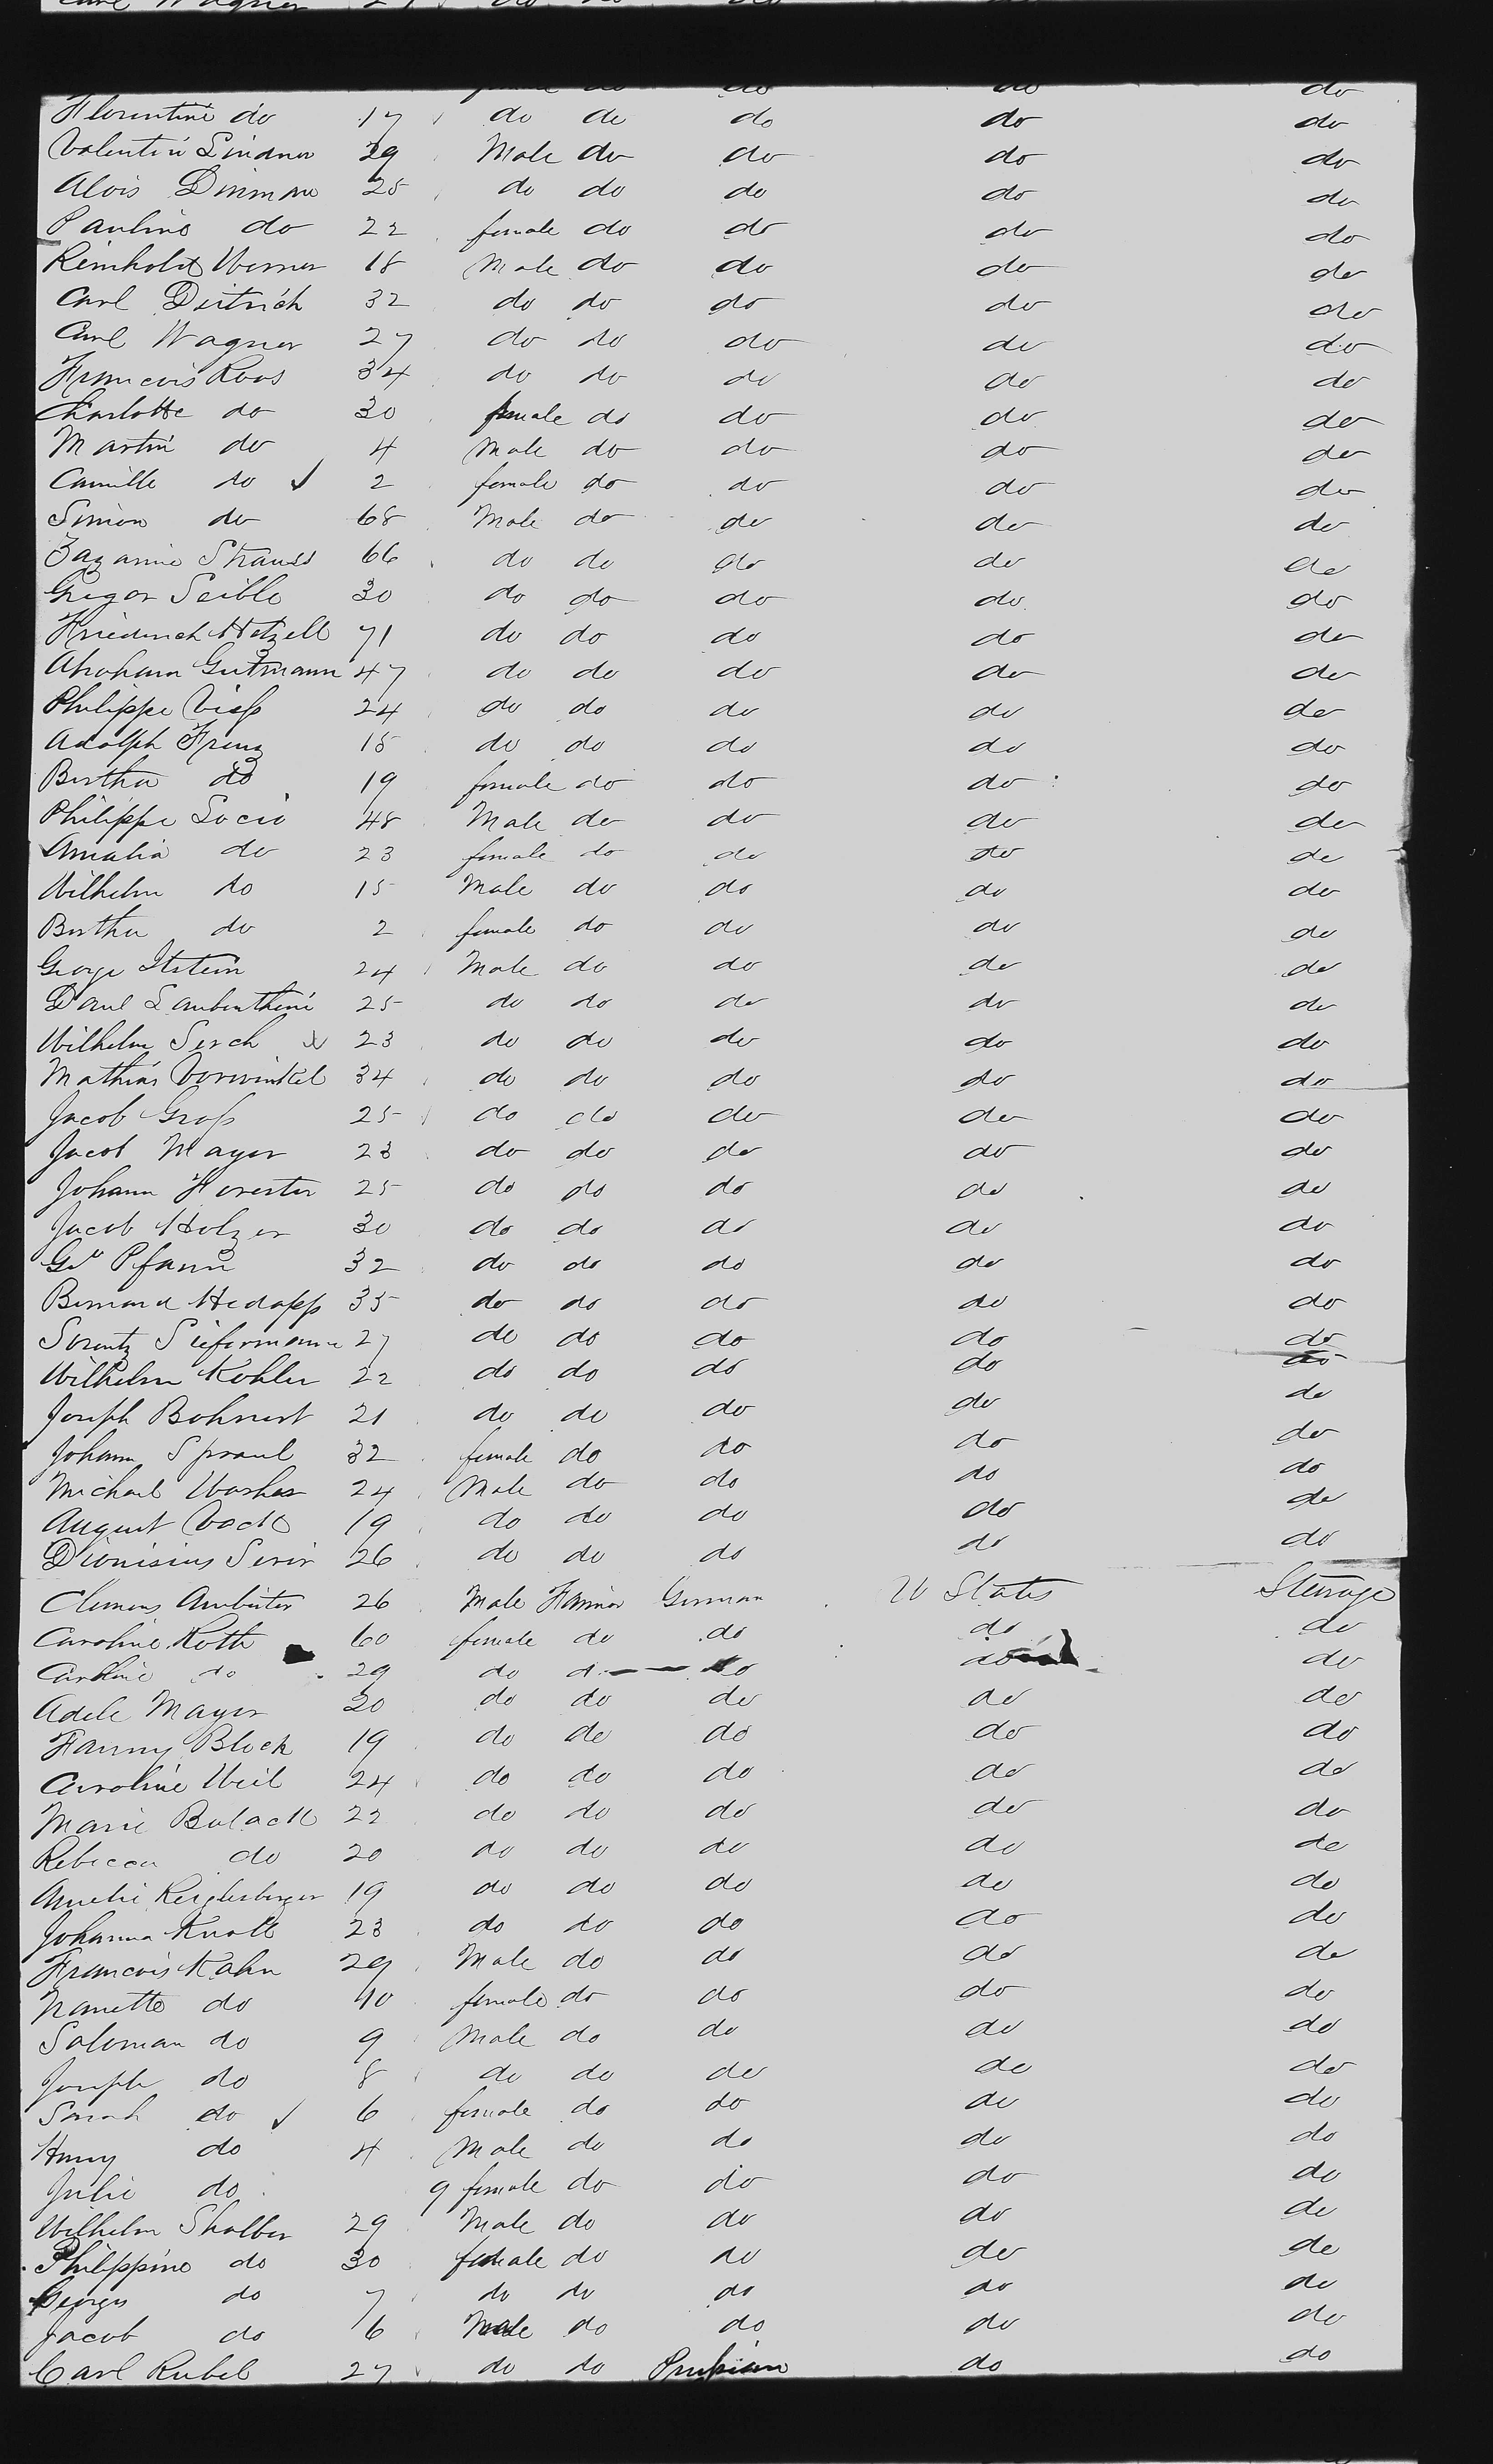 Carl Wagner 27 do do do
Florentine do 17 do do do do do
Valentin Lindner 29 Male do do do do
Alois 25 do do do do do
Pauline do 22 female do do do do
Reinhold Werner 18 Male do do do do
Carl Dietrich 32 do do do do do
Carl Wagner 27 do do do do do
Francois Roos 34 do do do do do
Charlotte do 30 female do do do do
Martin do 4 Male do do do do
Camille do 2 female do do do do
Simon do 68 Male do do do do
Strauss 66 do do do do do
Gregor Seible 30 do do do do do
Friedrich Hetzell 71 do do do do do
Abraham Gutmann 47 do do do do do
Philippe 24 do do do do do
Adolph Frenz 18 do do do do do
Bertha do 19 female do do do do
Philippe Locio 48 Male do do do do
Amalia do 23 female do do do do
Wilhelm do 15 Male do do do do
Bertha do 2 female do do do do
George Itstein 24 Male do do do do
Laubenthine 25 do do do do do
Wilhelm Serch 23 do do do do do
Mathias Vorwinkel 34 do do do do do
Jacob Groß 25 do do do do do
Jacob Mayer 23 do do do do do
Johann Forester 25 do do do do do
Jacob Holzer 30 do do do do do
Go Pfann 32 do do do do do
Bernard 35 do do do do do
Lorentz Siefermann 27 do do do do do
Wilhelm Kohler 22 do do do do do
Joseph Bohnert 21 do do do do do
Johann Spraul 32 female do do do do
Michael 24 Male do do do do
August Vock 19 do do do do do
Dionisius 26 do do do do do
Clemens 26 Male Farmer German U States Steerage
Caroline Roth 60 female do do do do
Caroline do 29 do do do do do
Adele Mayer 20 do do do do do
Fanny Block 19 do do do do do
Caroline Weil 24 do do do do do
Marie 22 do do do do do
Rebecca do 20 do do do do do
Amelie 19 do do do do do
Johanna Knoll 23 do do do do do
Francois Kahn 29 Male do do do do
Nanette do 40 female do do do do
Saloman do 9 Male do do do do
Joseph do 8 do do do do do
Sarah do 6 female do do do do
Henry do 4 Male do do do do
Julie do 9 female do do do do
Wilhelm Shalber 29 Male do do do do
Philippine do 30 female do do do do
Georges do 7 do do do do do
Jacob do 6 Male do do do do
Carl Rubel 27 do do Prußian do do